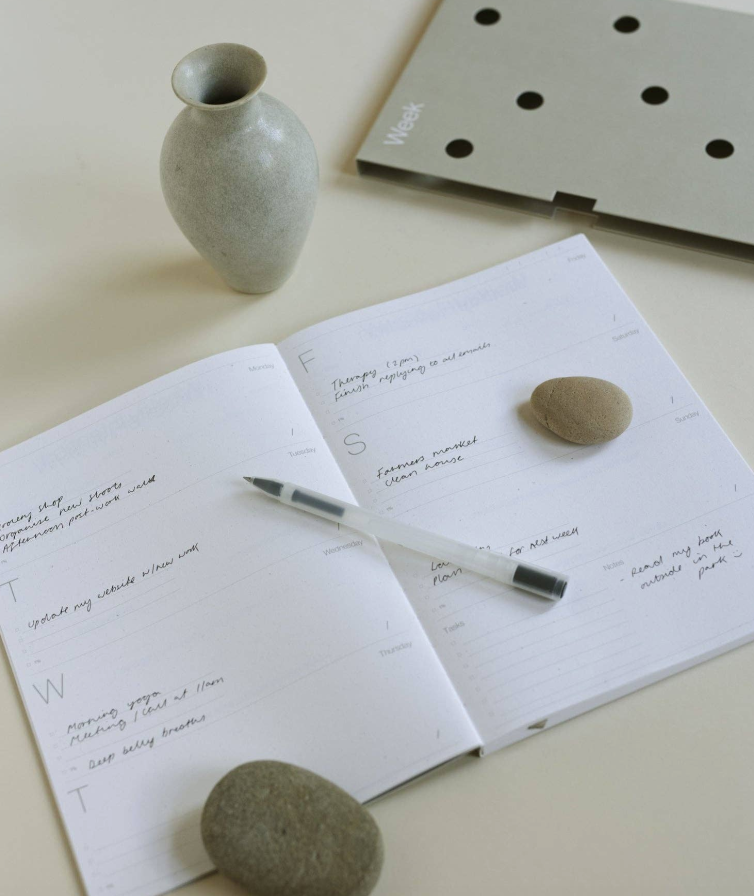 Week
Monday
grocery shop
Organise new shoots
Afternoon post-work walk
Tuesday
T
update my website w/new work
Wednesday
W
Morning yoga
Meeting / call at 11am
Deep belly breaths
Thursday
T
Friday
F
Therapy (2pm)
Finish replying to all emails
Saturday
S
Farmers market
clean house
Sunday
for next week
Plan
Tasks
Notes
- Read my book
outside in the
park :)